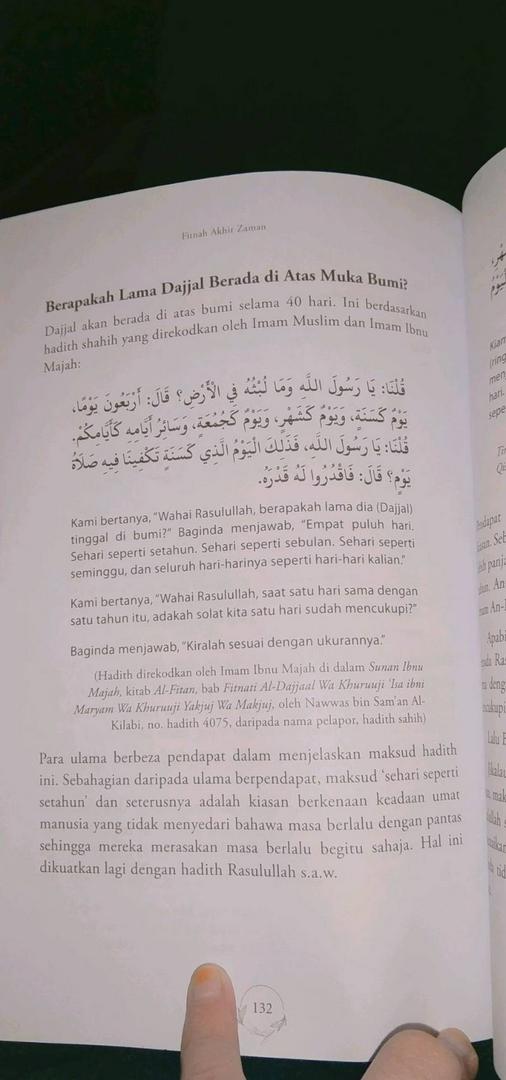 Fitnah Akhir Zaman
Berapakah Lama Dajjal Berada di Atas Muka Bumi?
Dajjal akan berada di atas bumi selama 40 hari. Ini berdasarkan
hadith shahih yang direkodkan oleh Imam Muslim dan Imam Ibnu
Majah:
قُلْنَا: يَا رَسُولَ اللَّهِ وَمَا لُبْثُهُ فِي الْأَرْضِ؟ قَالَ: أَرْبَعُونَ يَوْمًا،
يَوْمٌ كَسَنَةٍ، وَيَوْمٌ كَشَهْرٍ، وَيَوْمٌ كَجُمُعَةٍ، وَسَائِرُ أَيَّامِهِ كَأَيَّامِكُمْ.
قُلْنَا: يَا رَسُولَ اللَّهِ، فَذَلِكَ الْيَوْمُ الَّذِي كَسَنَةٍ تَكْفِينَا فِيهِ صَلَاةُ
يَوْمٍ؟ قَالَ: فَاقْدُرُوا لَهُ قَدْرَهُ.
Kami bertanya, “Wahai Rasulullah, berapakah lama dia (Dajjal)
tinggal di bumi?” Baginda menjawab, “Empat puluh hari.
Sehari seperti setahun. Sehari seperti sebulan. Sehari seperti
seminggu, dan seluruh hari-harinya seperti hari-hari kalian.”
Kami bertanya, “Wahai Rasulullah, saat satu hari sama dengan
satu tahun itu, adakah solat kita satu hari sudah mencukupi?”
Baginda menjawab, “Kiralah sesuai dengan ukurannya.”
(Hadith direkodkan oleh Imam Ibnu Majah di dalam Sunan Ibnu
Majah, kitab Al-Fitan, bab Fitnati Al-Dajjaal Wa Khuruuji ‘Isa ibni
Maryam Wa Khuruuji Yakjuj Wa Makjuj, oleh Nawwas bin Sam’an Al-
Kilabi, no. hadith 4075, daripada nama pelapor, hadith sahih)
Para ulama berbeza pendapat dalam menjelaskan maksud hadith
ini. Sebahagian daripada ulama berpendapat, maksud ‘sehari seperti
setahun’ dan seterusnya adalah kiasan berkenaan keadaan umat
manusia yang tidak menyedari bahawa masa berlalu dengan pantas
sehingga mereka merasakan masa berlalu begitu sahaja. Hal ini
dikuatkan lagi dengan hadith Rasulullah s.a.w.
132